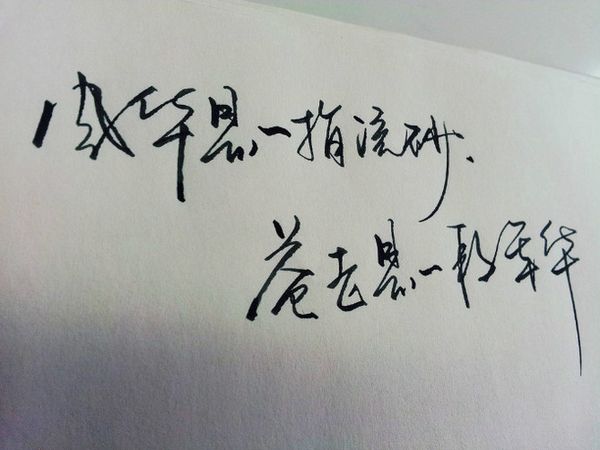 风华是一指流砂、
苍老是一段年华